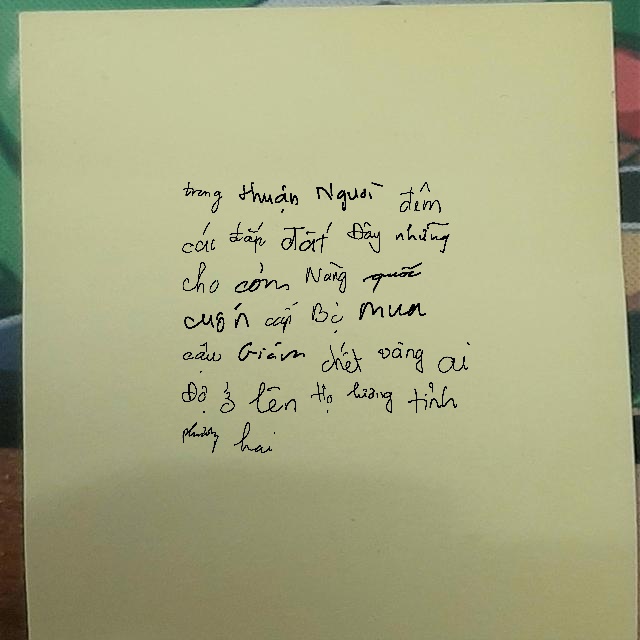 trong thuận Người đêm
các đắp đất Đây những
cho còn Nàng quốc
cuốn cấp Bộ mua
cậu Giám chết vàng ai
Độ ở lên Họ lương tỉnh
phương hai